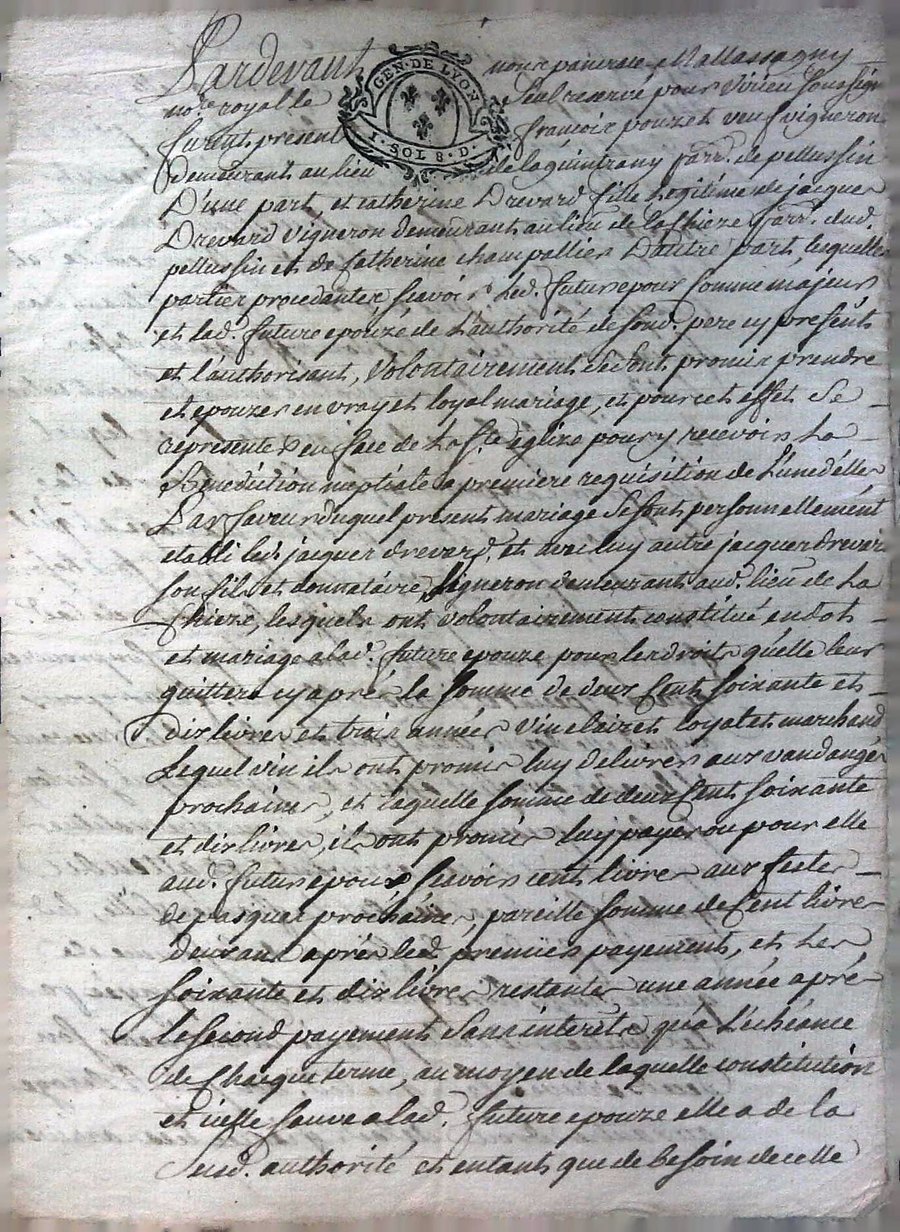 Pardevant nous
GEN · DE LYON
I · SOL 8 · D ·
not.e royal le seul reservé pour Virieu soussigné
furent présent françois pouzet veuf vigneron
demeurant au lieu de laquintrany parr. de pellussin
D'une part, et catherine Drevard fille légitime de jacques
Drevard vigneron demeurant au lieu de la Chieze parr. dud.
pellussin et de Catherine champallier D'autre part, lesquelles
parties procedantes scavoir led. futur epour comme majeur
et lad. future epouze de L'authorité de sond. pere cy présent
et l'authorisant, Volontairement se sont promis prendre
et epouzer en vray et loyal mariage, et pour cet effet se
representer en face de La Ste. eglize pour y recevoir La
Bénédiction nuptiale a premiere requisition de L'une d'élles
En faveur duquel présent mariage se sont personnellement
etabli led. jacques drevard, et avec luy autre jacques drevard
son fils et donnataire, vigneron demeurant aud. lieu de La
Chieze, lesquels ont volontairement constitué en dot
et mariage a lad. future epouze pour les droits qu'elle leur
quittera cy aprés la somme de deux Cent soixante et
dix livres et trois année vin clair et loyal et marchand
Lequel vin ils ont promis luy delivrer aux vandange
prochaines, et laquelle somme de deux Cent soixante
et dix livres, ils ont promis luy payer ou pour elle
aud. futur epoux scavoir cent livres aux feste
de pasques prochaines, pareille somme de Cent livres
deux ans aprés led. premier payement, et les
soixante et dix livres restantes une année aprés
le second payement sans interets qu'a L'echéance
de Chacque terme, au moyen de laquelle constitution
et icelle sauve a lad. future epouze elle a de la
susd. authorité et en tant que de besoin de celle